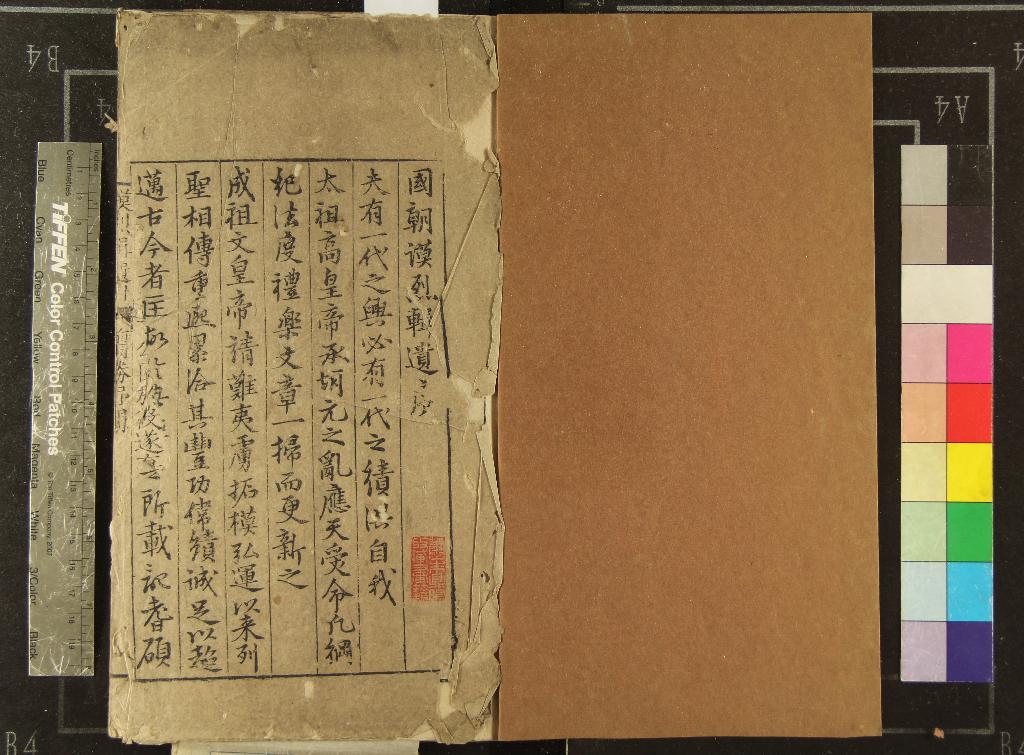 國朝謨烈輯遺
夫有一代之興必有一代之績洪自我
太祖高皇帝承胡元之亂應天受命凡綱
紀法度禮樂文章一掃而更新之
成祖文皇帝靖難夷虜拓模弘運以来列
聖相傳重熙累洽其豐功偉績誠足以超
邁古今者
所載記耆碩
TIFFEN Color Control Patches
© The Tiffen Company, 2007
Centimetres
Inches
Blue
Cyan
Green
Yellow
Red
Magenta
White
3/Color
Black
B4
A4